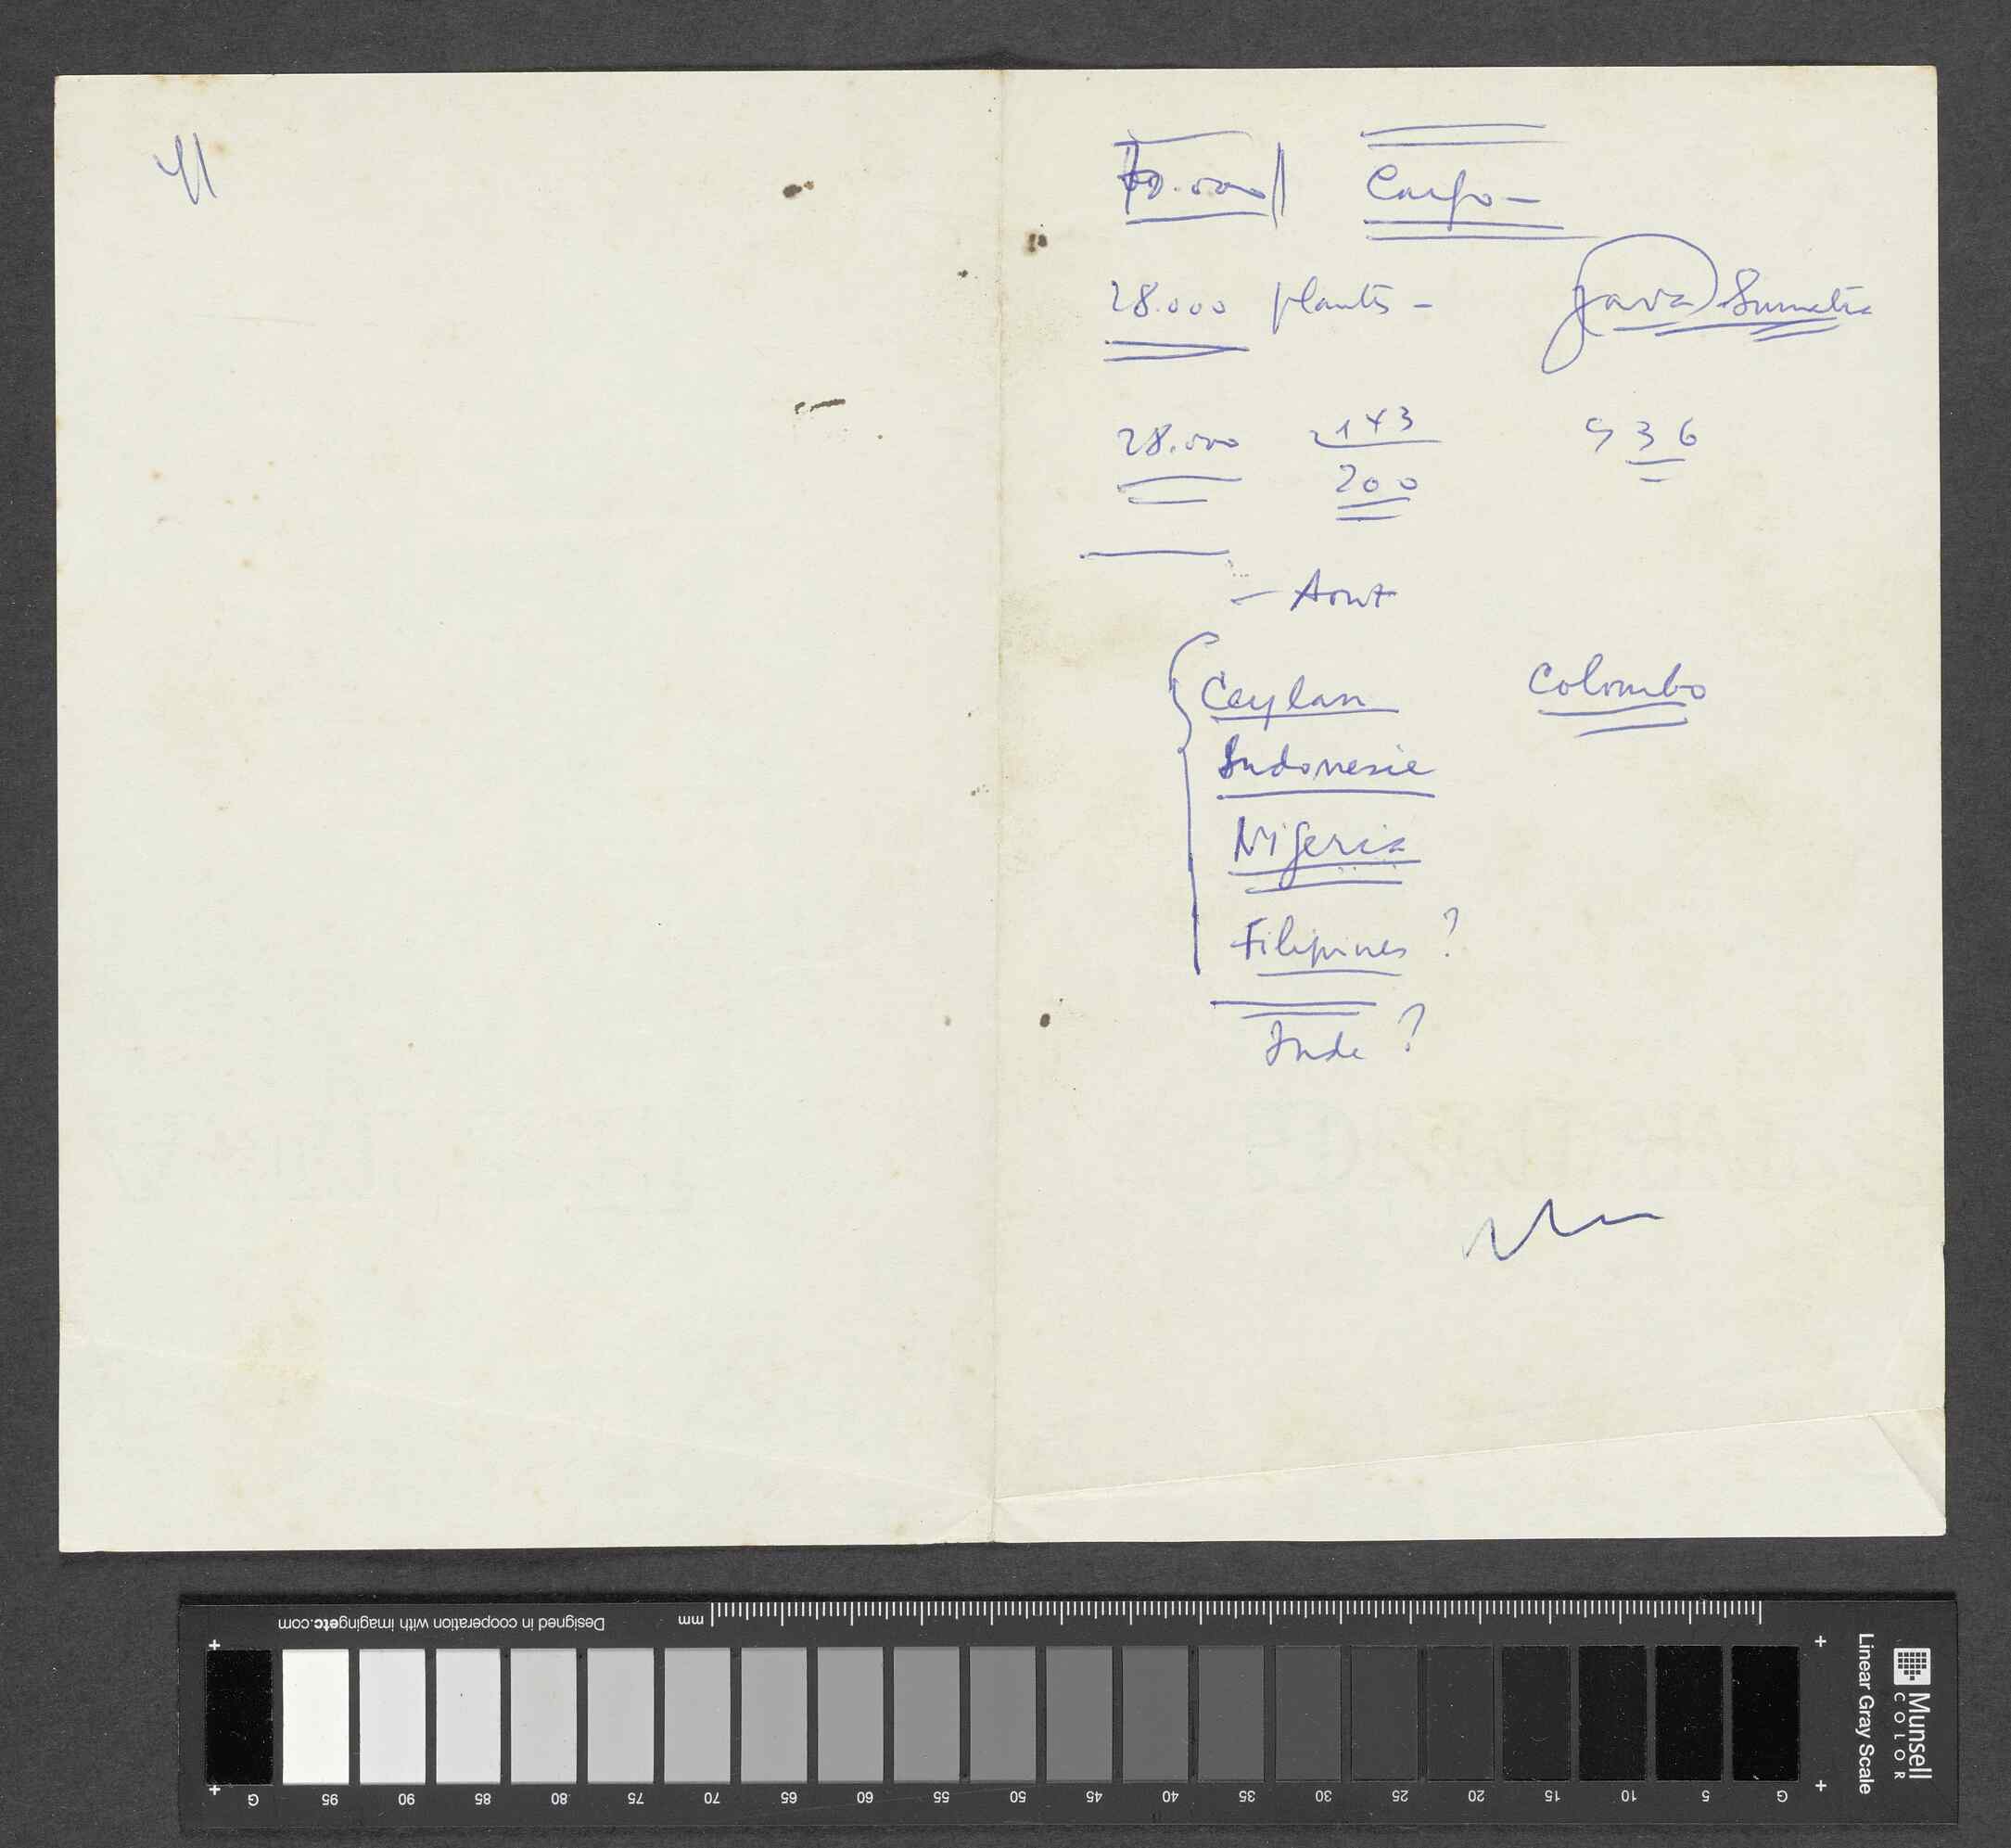 Cargo -
28.000 plants - Java Sumatra
28.000 2143 936
200
- Aout
Ceylan Colombo
Indonesie
Nigeria
Filipines ?
Inde ?
Designed in cooperation with imagingetc.com
mm
G 95 90 85 80 75 70 65 60 55 50 45 40 35 30 25 20 15 10 5 G
Linear Gray Scale
Munsell
COLOR